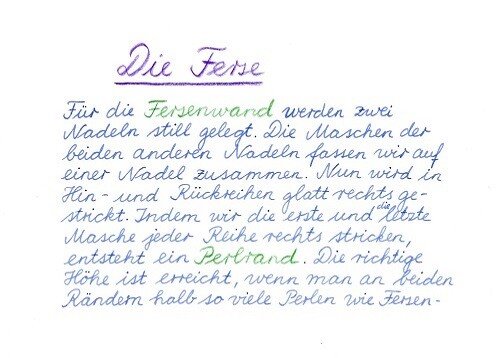 Die Ferse
Für die Fersenwand werden zwei
Nadeln still gelegt. Die Maschen der
beiden anderen Nadeln fassen wir auf
einer Nadel zusammen. Nun wird in
Hin- und Rückreihen glatt rechts ge-
strickt. Indem wir die erste und die letzte
Masche jeder Reihe rechts stricken,
entsteht ein Perlrand. Die richtige
Höhe ist erreicht, wenn man an beiden
Rändern halb so viele Perlen wie Fersen-